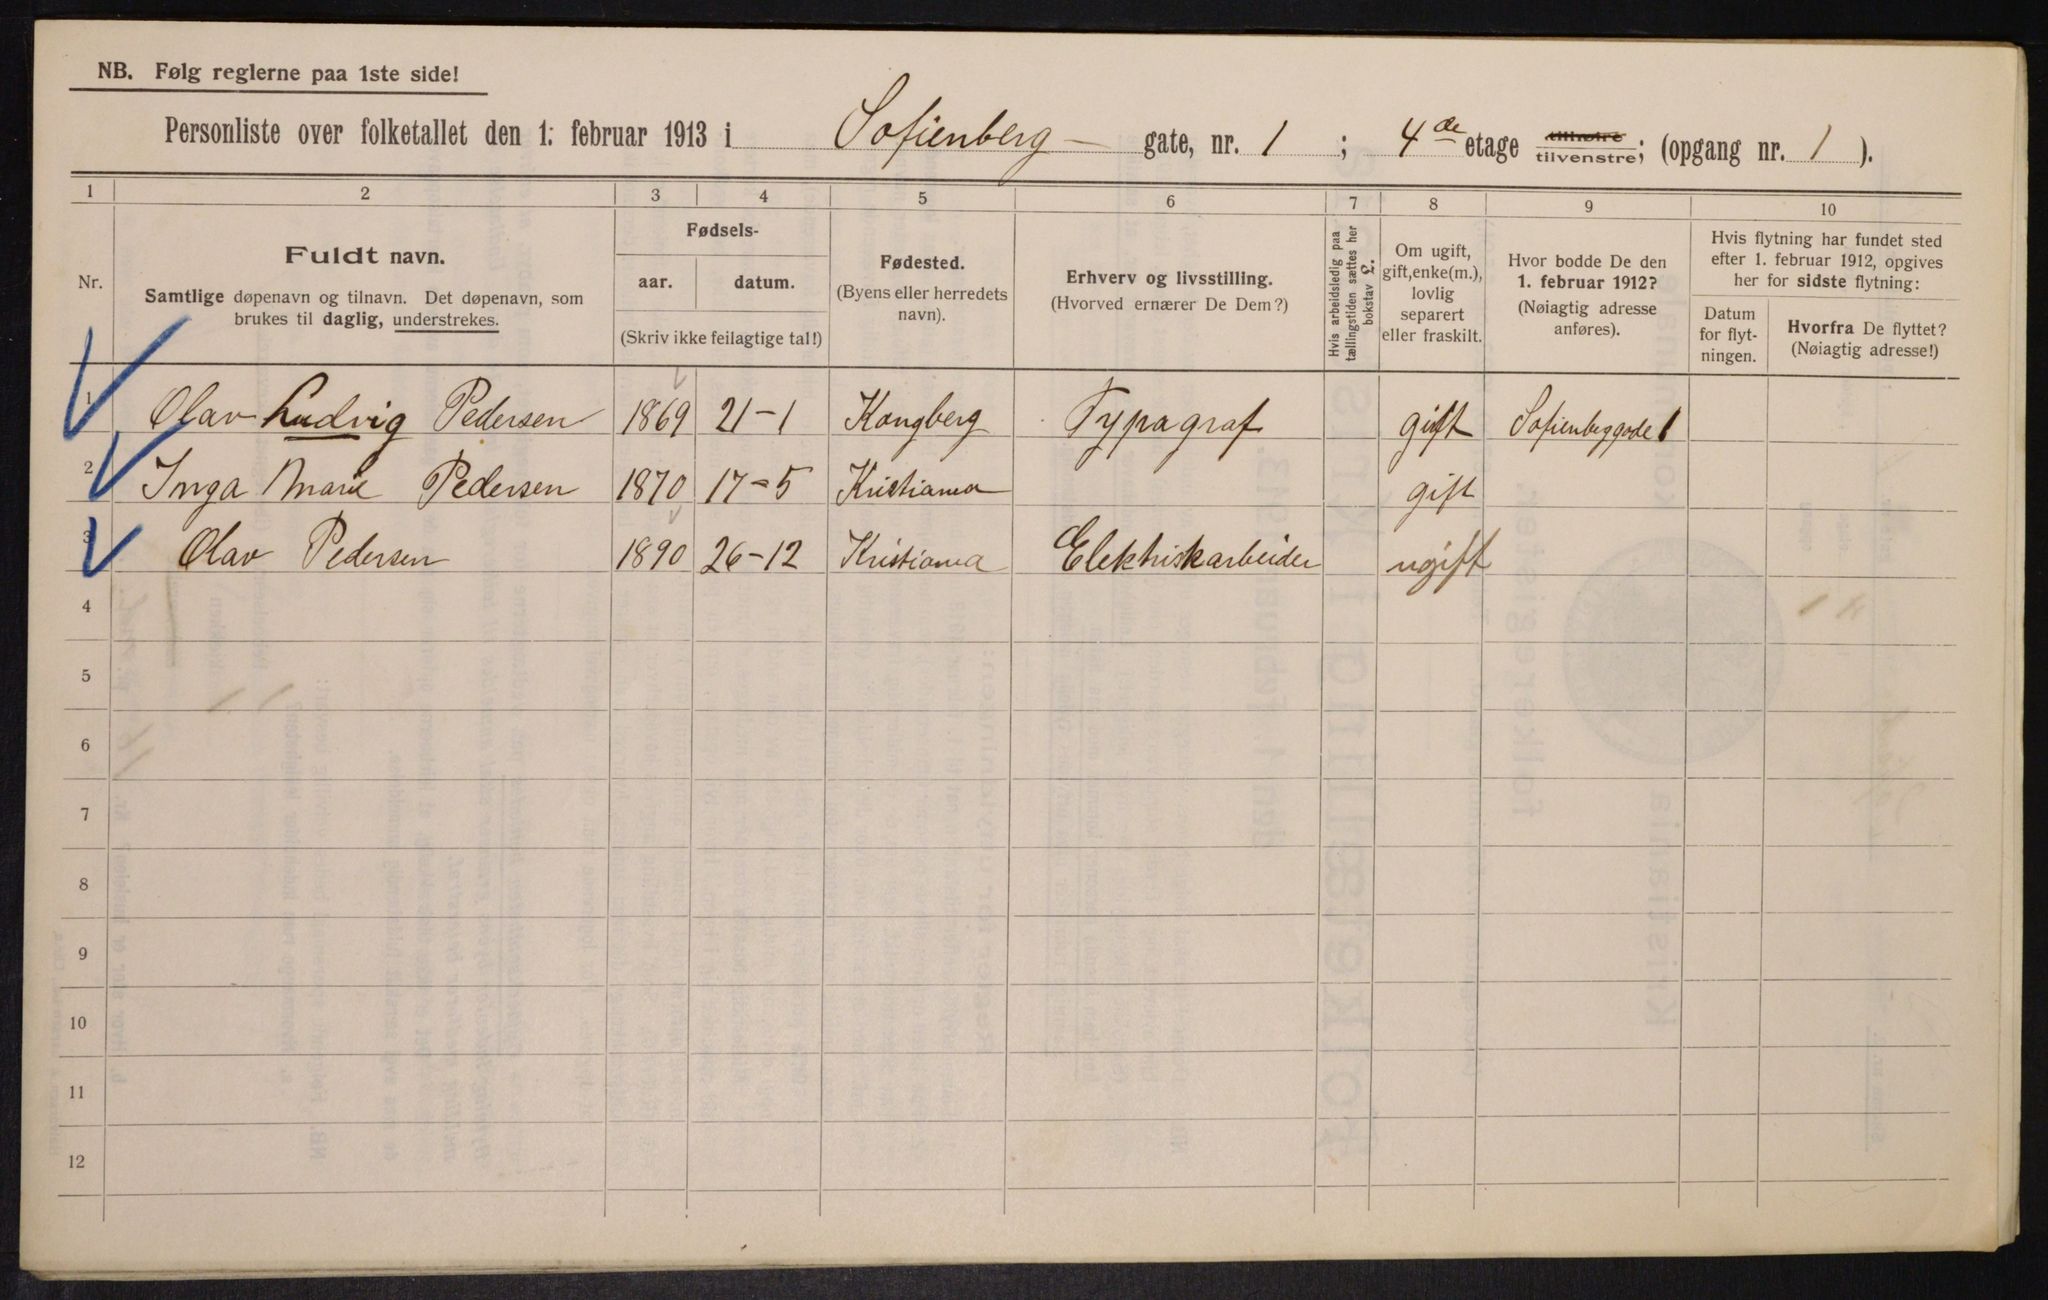 NB. Følg reglerne paa 1ste side!
Personliste over folketallet den 1. februar 1913 i Sofienberg- gate, nr. 1 ; 4de etage tilhøire tilvenstre; (opgang nr. 1 ).
1 2 3 4 5 6 7 8 9 10
Nr.
Fuldt navn.
Samtlige døpenavn og tilnavn. Det døpenavn, som
brukes til daglig, understrekes.
Fødsels-
aar. datum.
(Skriv ikke feilagtige tal!)
Fødested.
(Byens eller herredets
navn).
Erhverv og livsstilling.
(Hvorved ernærer De Dem?)
Hvis arbeidsledig paa
tællingstiden sættes her
bokstav £.
Om ugift,
gift, enke(m.),
lovlig
separert
eller fraskilt.
Hvor bodde De den
1. februar 1912?
(Nøiagtig adresse
anføres).
Hvis flytning har fundet sted
efter 1. februar 1912, opgives
her for sidste flytning:
Datum
for flyt-
ningen.
Hvorfra De flyttet?
(Nøiagtig adresse!)
1 Olav Ludvig Pedersen 1869 21-1 Kongberg Typograf gift Sofienberggade 1
2 Inga Marie Pedersen 1870 17-5 Kristiania gift
3 Olav Pedersen 1890 26-12 Kristiania Elektriskarbeider ugift
4
5
6
7
8
9
10
11
12